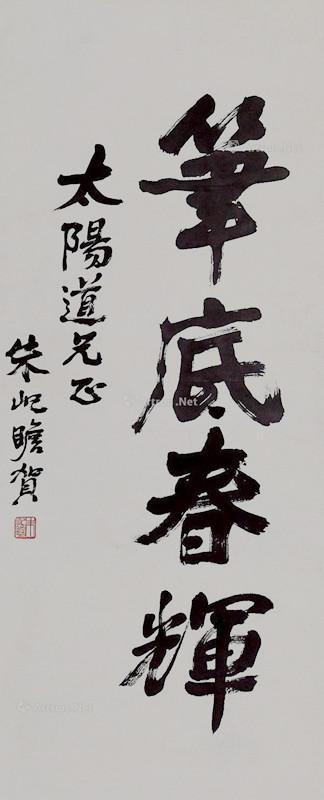 筆底春輝
太陽道兄正
朱屺瞻賀